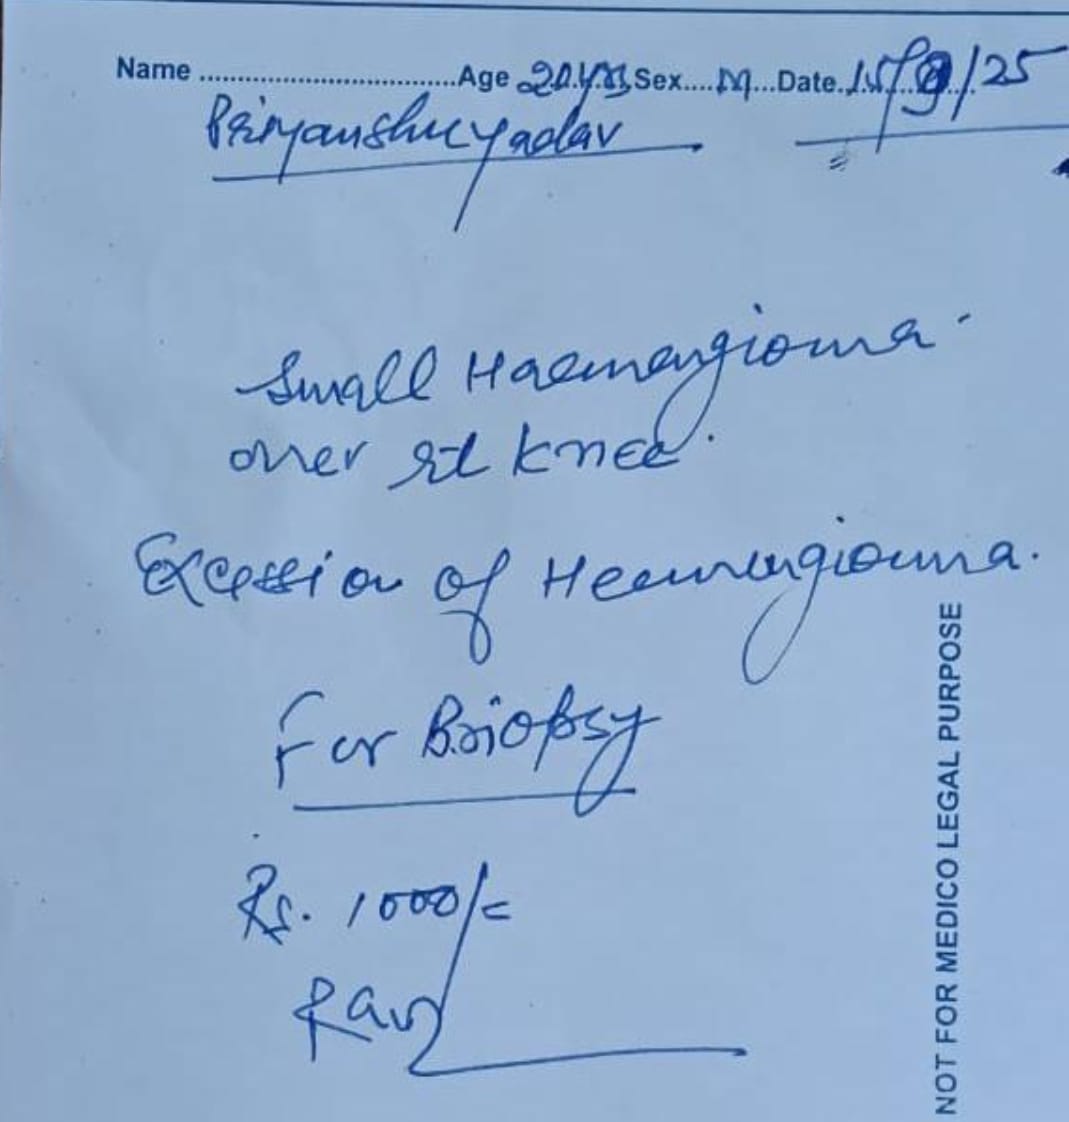 Name ............................... Age 20 yrs Sex.... M ...Date. 15/9/25
Priyanshu Yadav
Small Haemangioma
over rt knee.
Excession of Heamangioma.
For Biopsy
Rs. 1000/=
NOT FOR MEDICO LEGAL PURPOSE